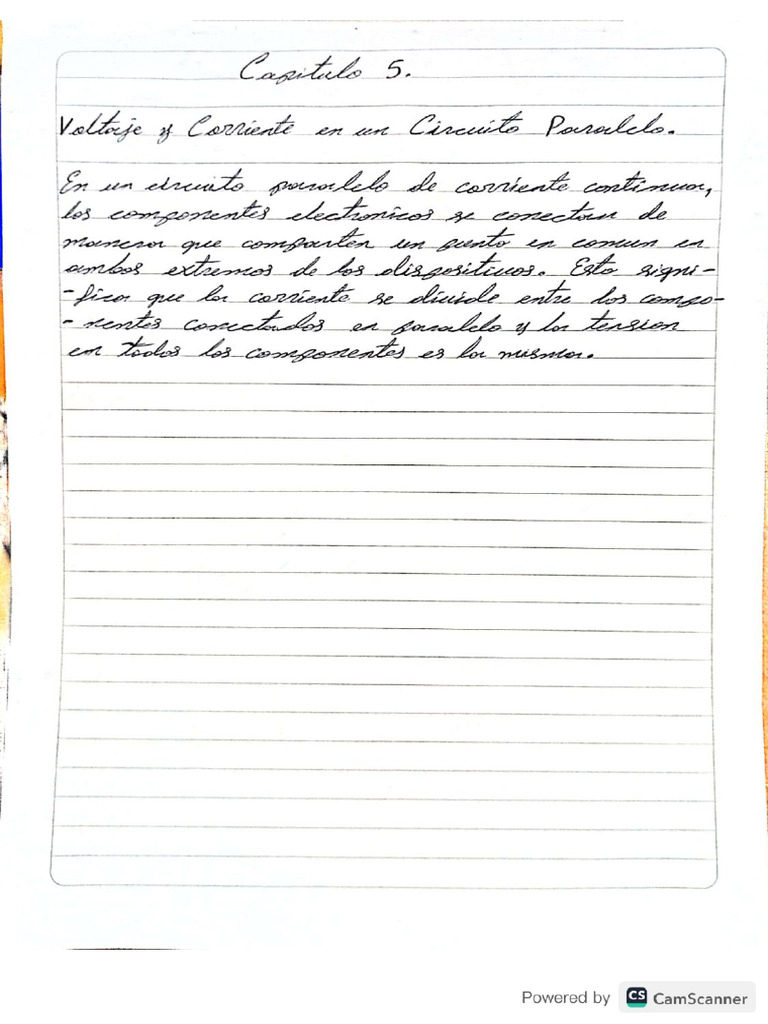 Capitulo 5.
Voltaje y Corriente en un Circuito Paralelo.
En un circuito paralelo de corriente continua,
los componentes electronicos se conectan de
manera que comparten un punto en comun en
ambos extremos de los dispositivos. Esto signi-
-fica que la corriente se divide entre los compo-
-nentes conectados en paralelo y la tension
en todos los componentes es la misma.
Powered by CS CamScanner